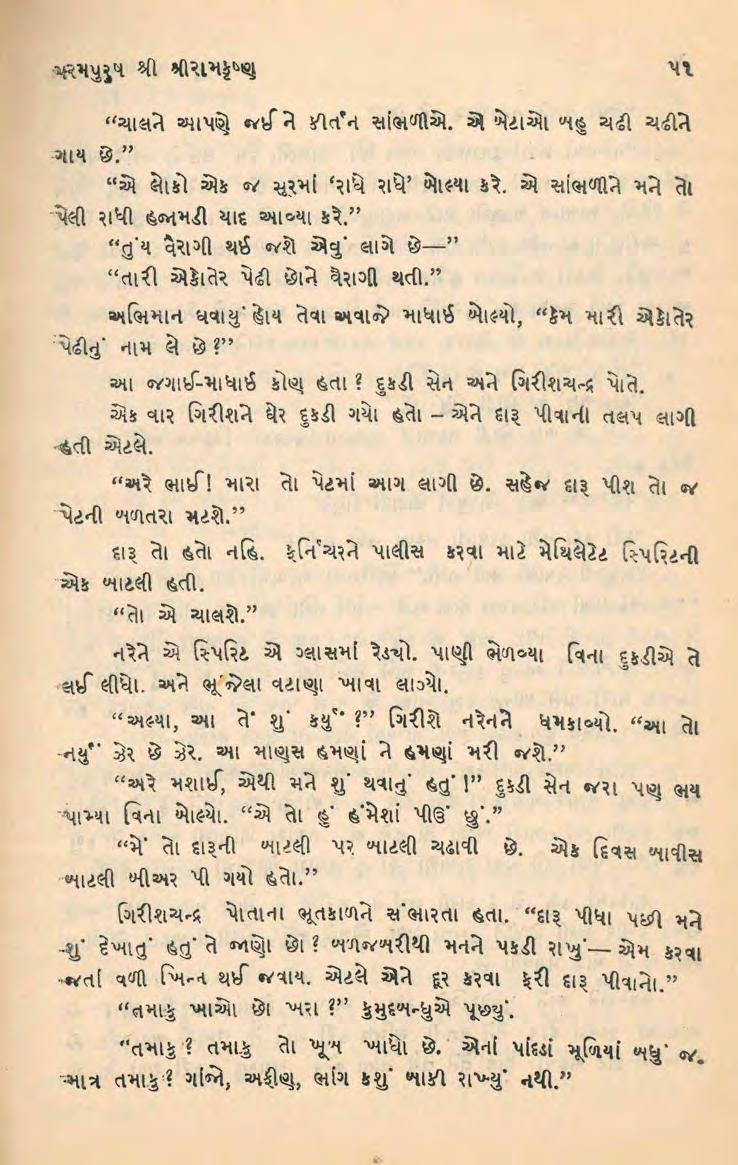 પરમપુરુષ શ્રી શ્રીરામકૃષ્ણ ૫૧
“ચાલને આપણે જઈ ને કીર્તન સાંભળીએ. એ બેટાઓ બહુ ચઢી ચઢીને
ગાય છે.”
“એ લોકો એક જ સૂરમાં ‘રાધે રાધે’ બોલ્યા કરે. એ સાંભળીને મને તો
પેલી રાધી હજામડી યાદ આવ્યા કરે.”
“તુંય વૈરાગી થઈ જશે એવું લાગે છે—”
“તારી એકોતેર પેઢી છોને વૈરાગી થતી.”
અભિમાન ઘવાયું હોય તેવા અવાજે માધાઈ બોલ્યો, “કેમ મારી એકોતેર
પેઢીનું નામ લે છે?”
આ જગાઈ-માધાઈ કોણ હતા ? દુકડી સેન અને ગિરીશચન્દ્ર પોતે.
એક વાર ગિરીશને ઘેર દુકડી ગયો હતો – એને દારૂ પીવાની તલપ લાગી
હતી એટલે.
“અરે ભાઈ! મારા તો પેટમાં આગ લાગી છે. સહેજ દારૂ પીશ તો જ
પેટની બળતરા મટશે.”
દારૂ તો હતો નહિ. ફર્નિચરને પાલીસ કરવા માટે મેથિલેટેટ સ્પિરિટની
એક બાટલી હતી.
“તો એ ચાલશે.”
નરેને એ સ્પિરિટ એ ગ્લાસમાં રેડ્યો. પાણી ભેળવ્યા વિના દુકડીએ તે
લઈ લીધો. અને ભૂંજેલા વટાણા ખાવા લાગ્યો.
“અલ્યા, આ તેં શું કર્યું ?” ગિરીશે નરેનને ધમકાવ્યો. “આ તો
નર્યું ઝેર છે ઝેર. આ માણસ હમણાં ને હમણાં મરી જશે.”
“અરે મશાઈ, એથી મને શું થવાનું હતું !” દુકડી સેન જરા પણ ભય
પામ્યા વિના બોલ્યો. “એ તો હું હંમેશાં પીઉં છું.”
“મેં તો દારૂની બાટલી પર બાટલી ચઢાવી છે. એક દિવસ બાવીસ
બાટલી બીઅર પી ગયો હતો.”
ગિરીશચન્દ્ર પોતાના ભૂતકાળને સંભારતા હતા. “દારૂ પીધા પછી મને
શું દેખાતું હતું તે જાણો છો ? બળજબરીથી મનને પકડી રાખું— એમ કરવા
જતાં વળી ખિન્ન થઈ જવાય. એટલે એને દૂર કરવા ફરી દારૂ પીવાનો.”
“તમાકુ ખાઓ છો ખરા ?” કુમુદબન્ધુએ પૂછ્યું.
“તમાકુ ? તમાકુ તો ખૂબ ખાધો છે. એનાં પાંદડાં મૂળિયાં બધું જ.
માત્ર તમાકુ ? ગાંજો, અફીણ, ભાંગ કશું બાકી રાખ્યું નથી.”